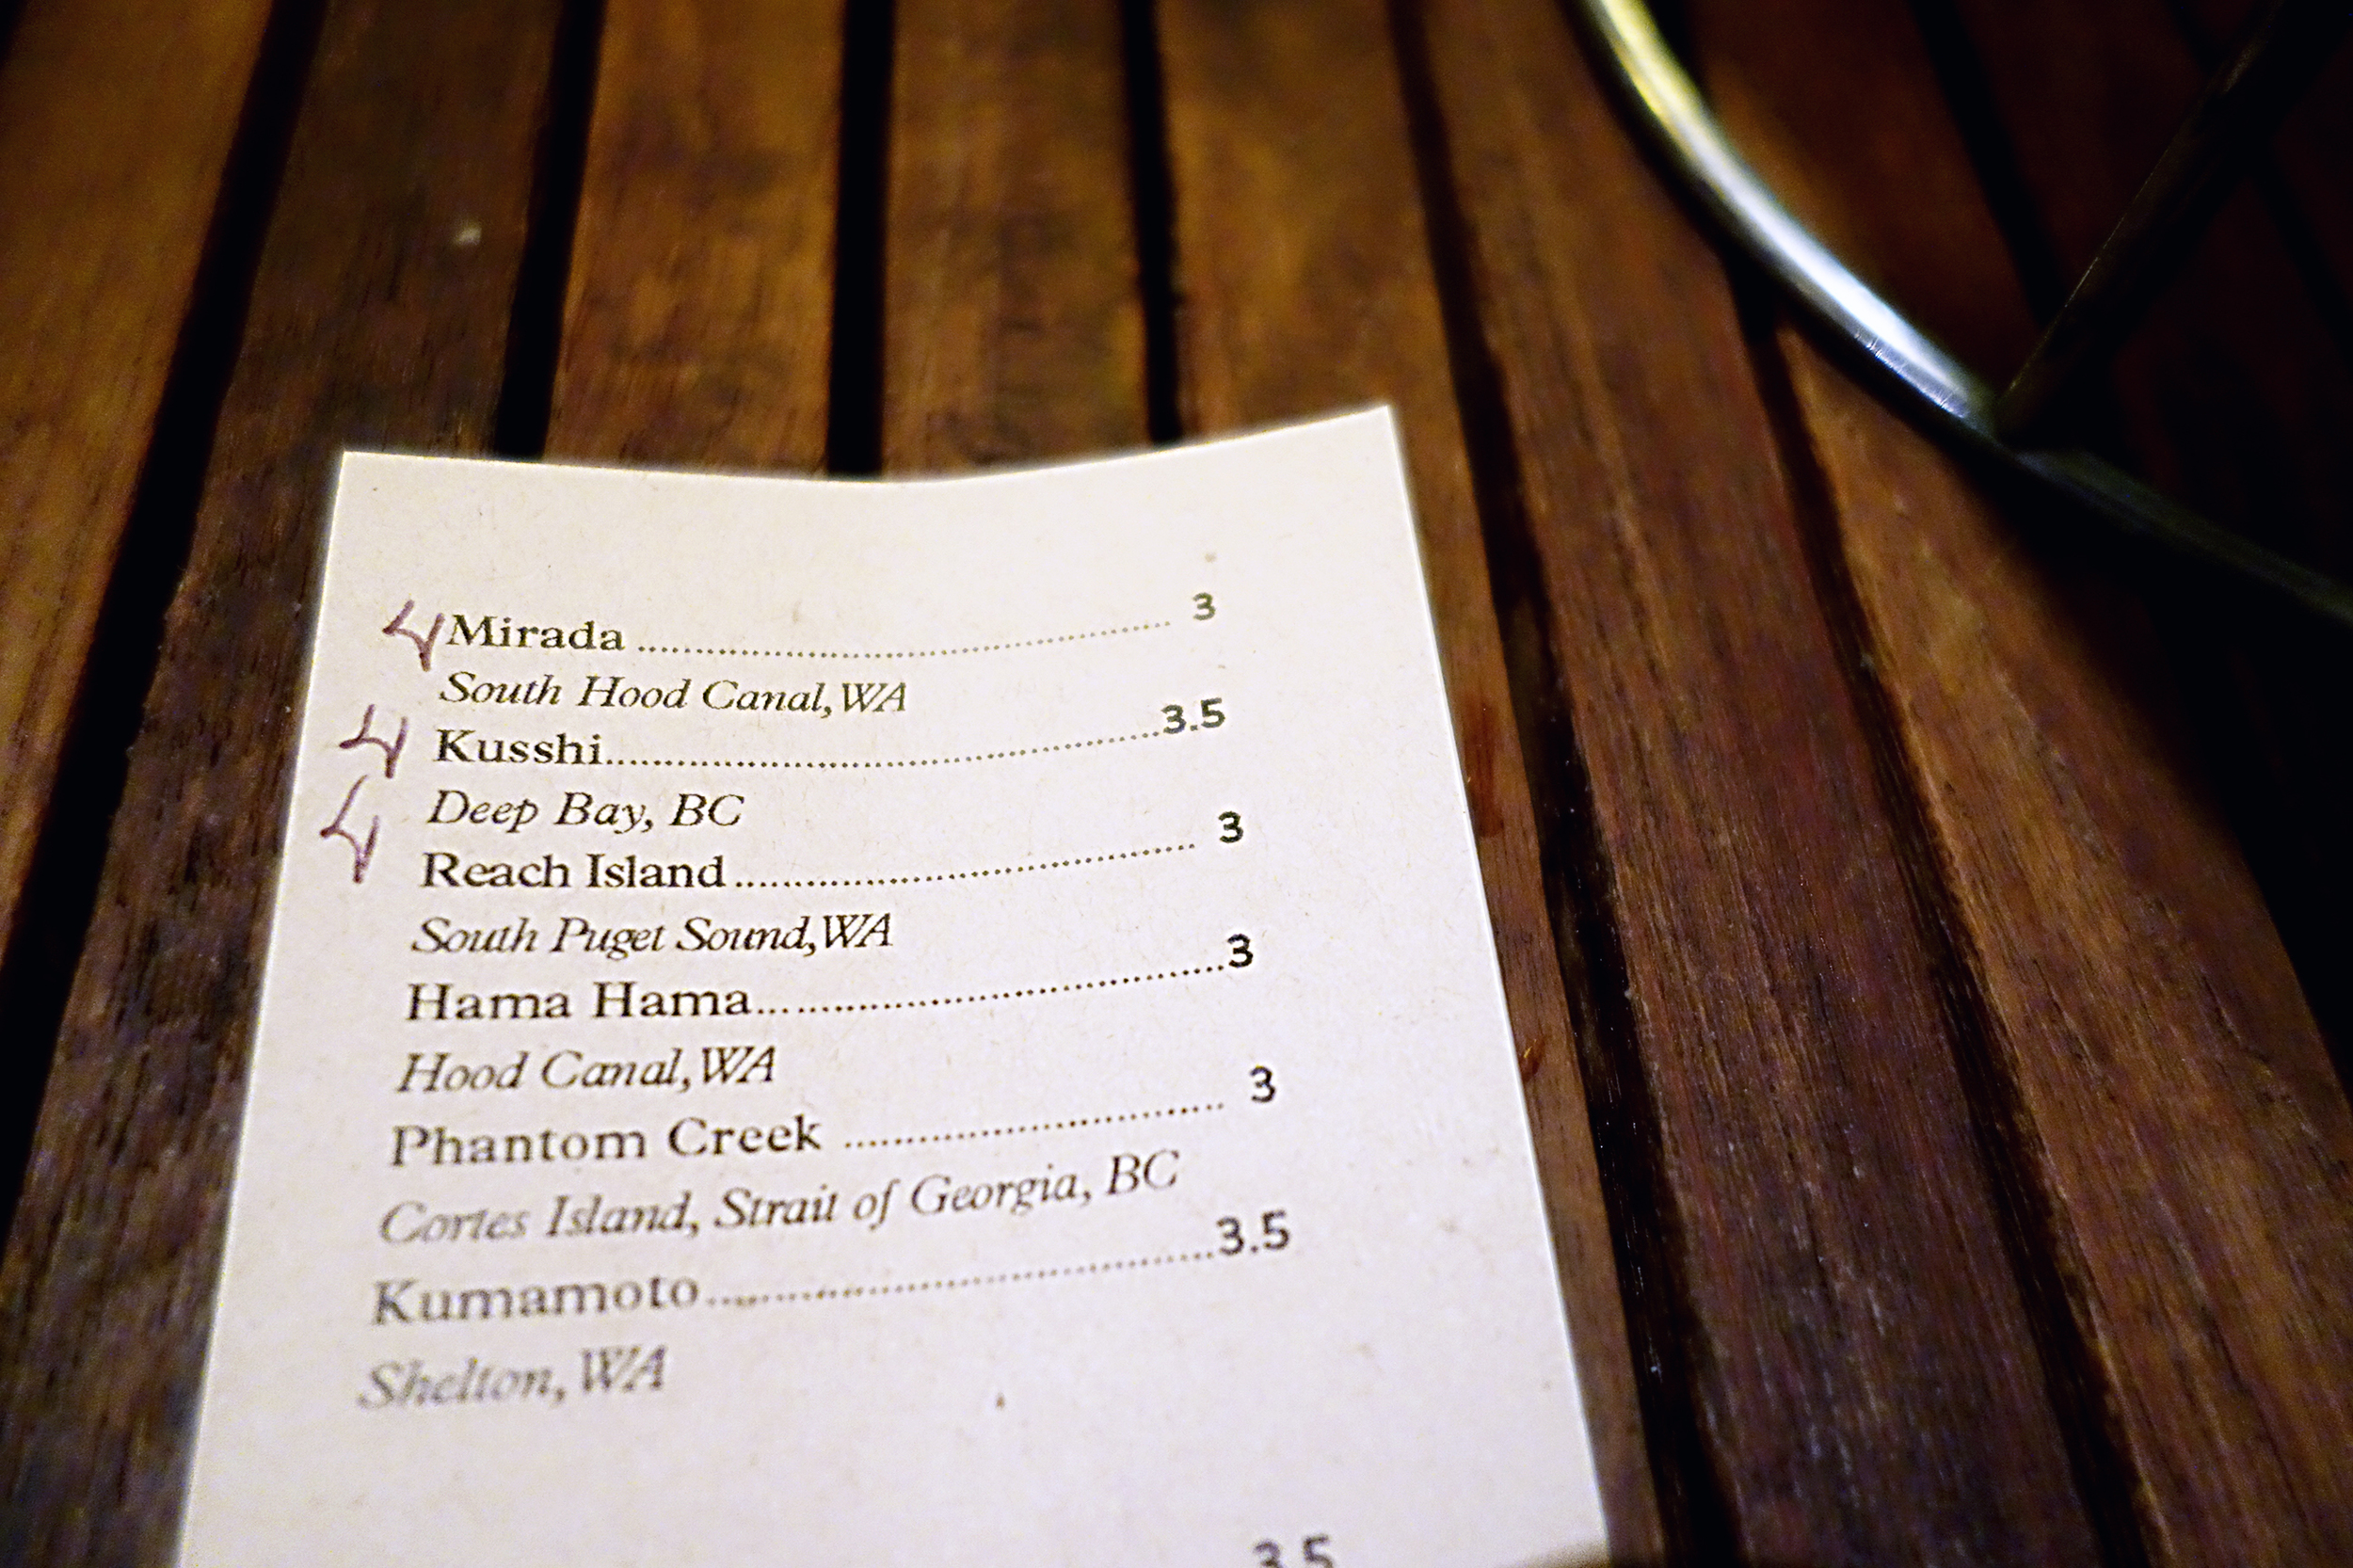 4 Mirada ........................................ 3
South Hood Canal, WA
4 Kusshi........................................3.5
Deep Bay, BC
4 Reach Island ........................................ 3
South Puget Sound, WA
Hama Hama........................................3
Hood Canal, WA
Phantom Creek ........................................ 3
Cortes Island, Strait of Georgia, BC
Kumamoto........................................3.5
Shelton, WA
3.5